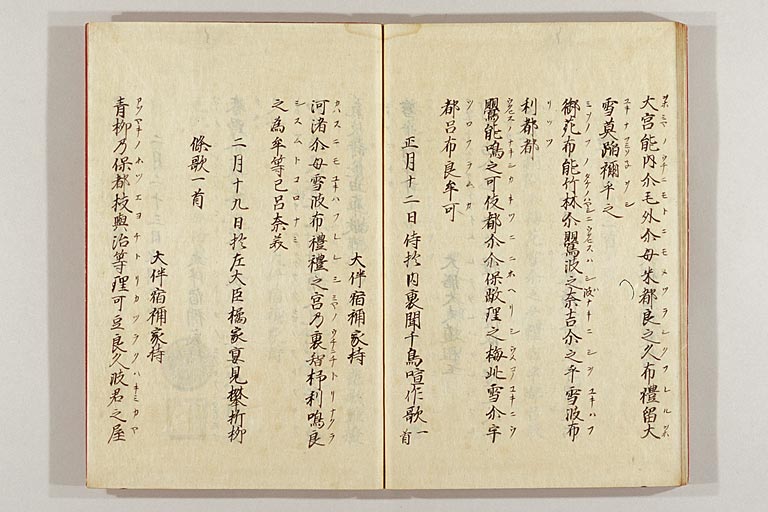 大宮能内尓毛外尓母米都良之久布禮留大
雪莫蹈禰乎之
御苑布能竹林尓鸎波之波奈吉尓之乎雪波布
利都都
鸎能鳴之可伎都尓尓保敝理之梅此雪尓宇
都呂布良牟可
正月十二日侍於内裏聞千鳥喧作歌一首
大伴宿禰家持
河渚尓母雪波布禮禮之宮乃裏智杼利鳴良
之為牟等己呂奈美
二月十九日於左大臣橘家宴見攀折柳
條歌一首
大伴宿禰家持
青柳乃保都枝與治等理可豆良久波君之屋